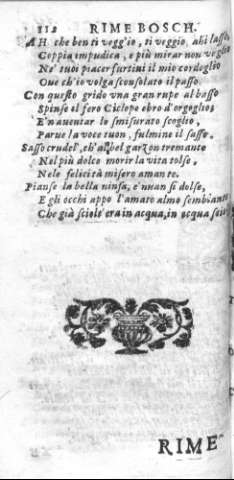 112 RIME BOSCH.
AH che ben ti vegg'io, ti veggio, ahi lasso,
Coppia impudica, e più mirar non veggio
Ne' tuoi piacer furtivi il mio cordoglio
Oue ch'io volga sconsolato il passo.
Con questo grido vna gran rupe al basso
Spinse il fero Ciclope ebro d'orgoglio;
E'n auentar lo smisurato scoglio,
Parue la voce tuon, fulmine il sasso.
Sasso crudel, ch'al bel garzon tremante
Nel più dolce morir la vita tolse,
Nele felicità misero amante.
Pianse la bella ninfa, e'nuan si dolse,
E gli occhi appo l'amato almo sembiante
Che già sciolt' era in acqua, in acqua
RIME